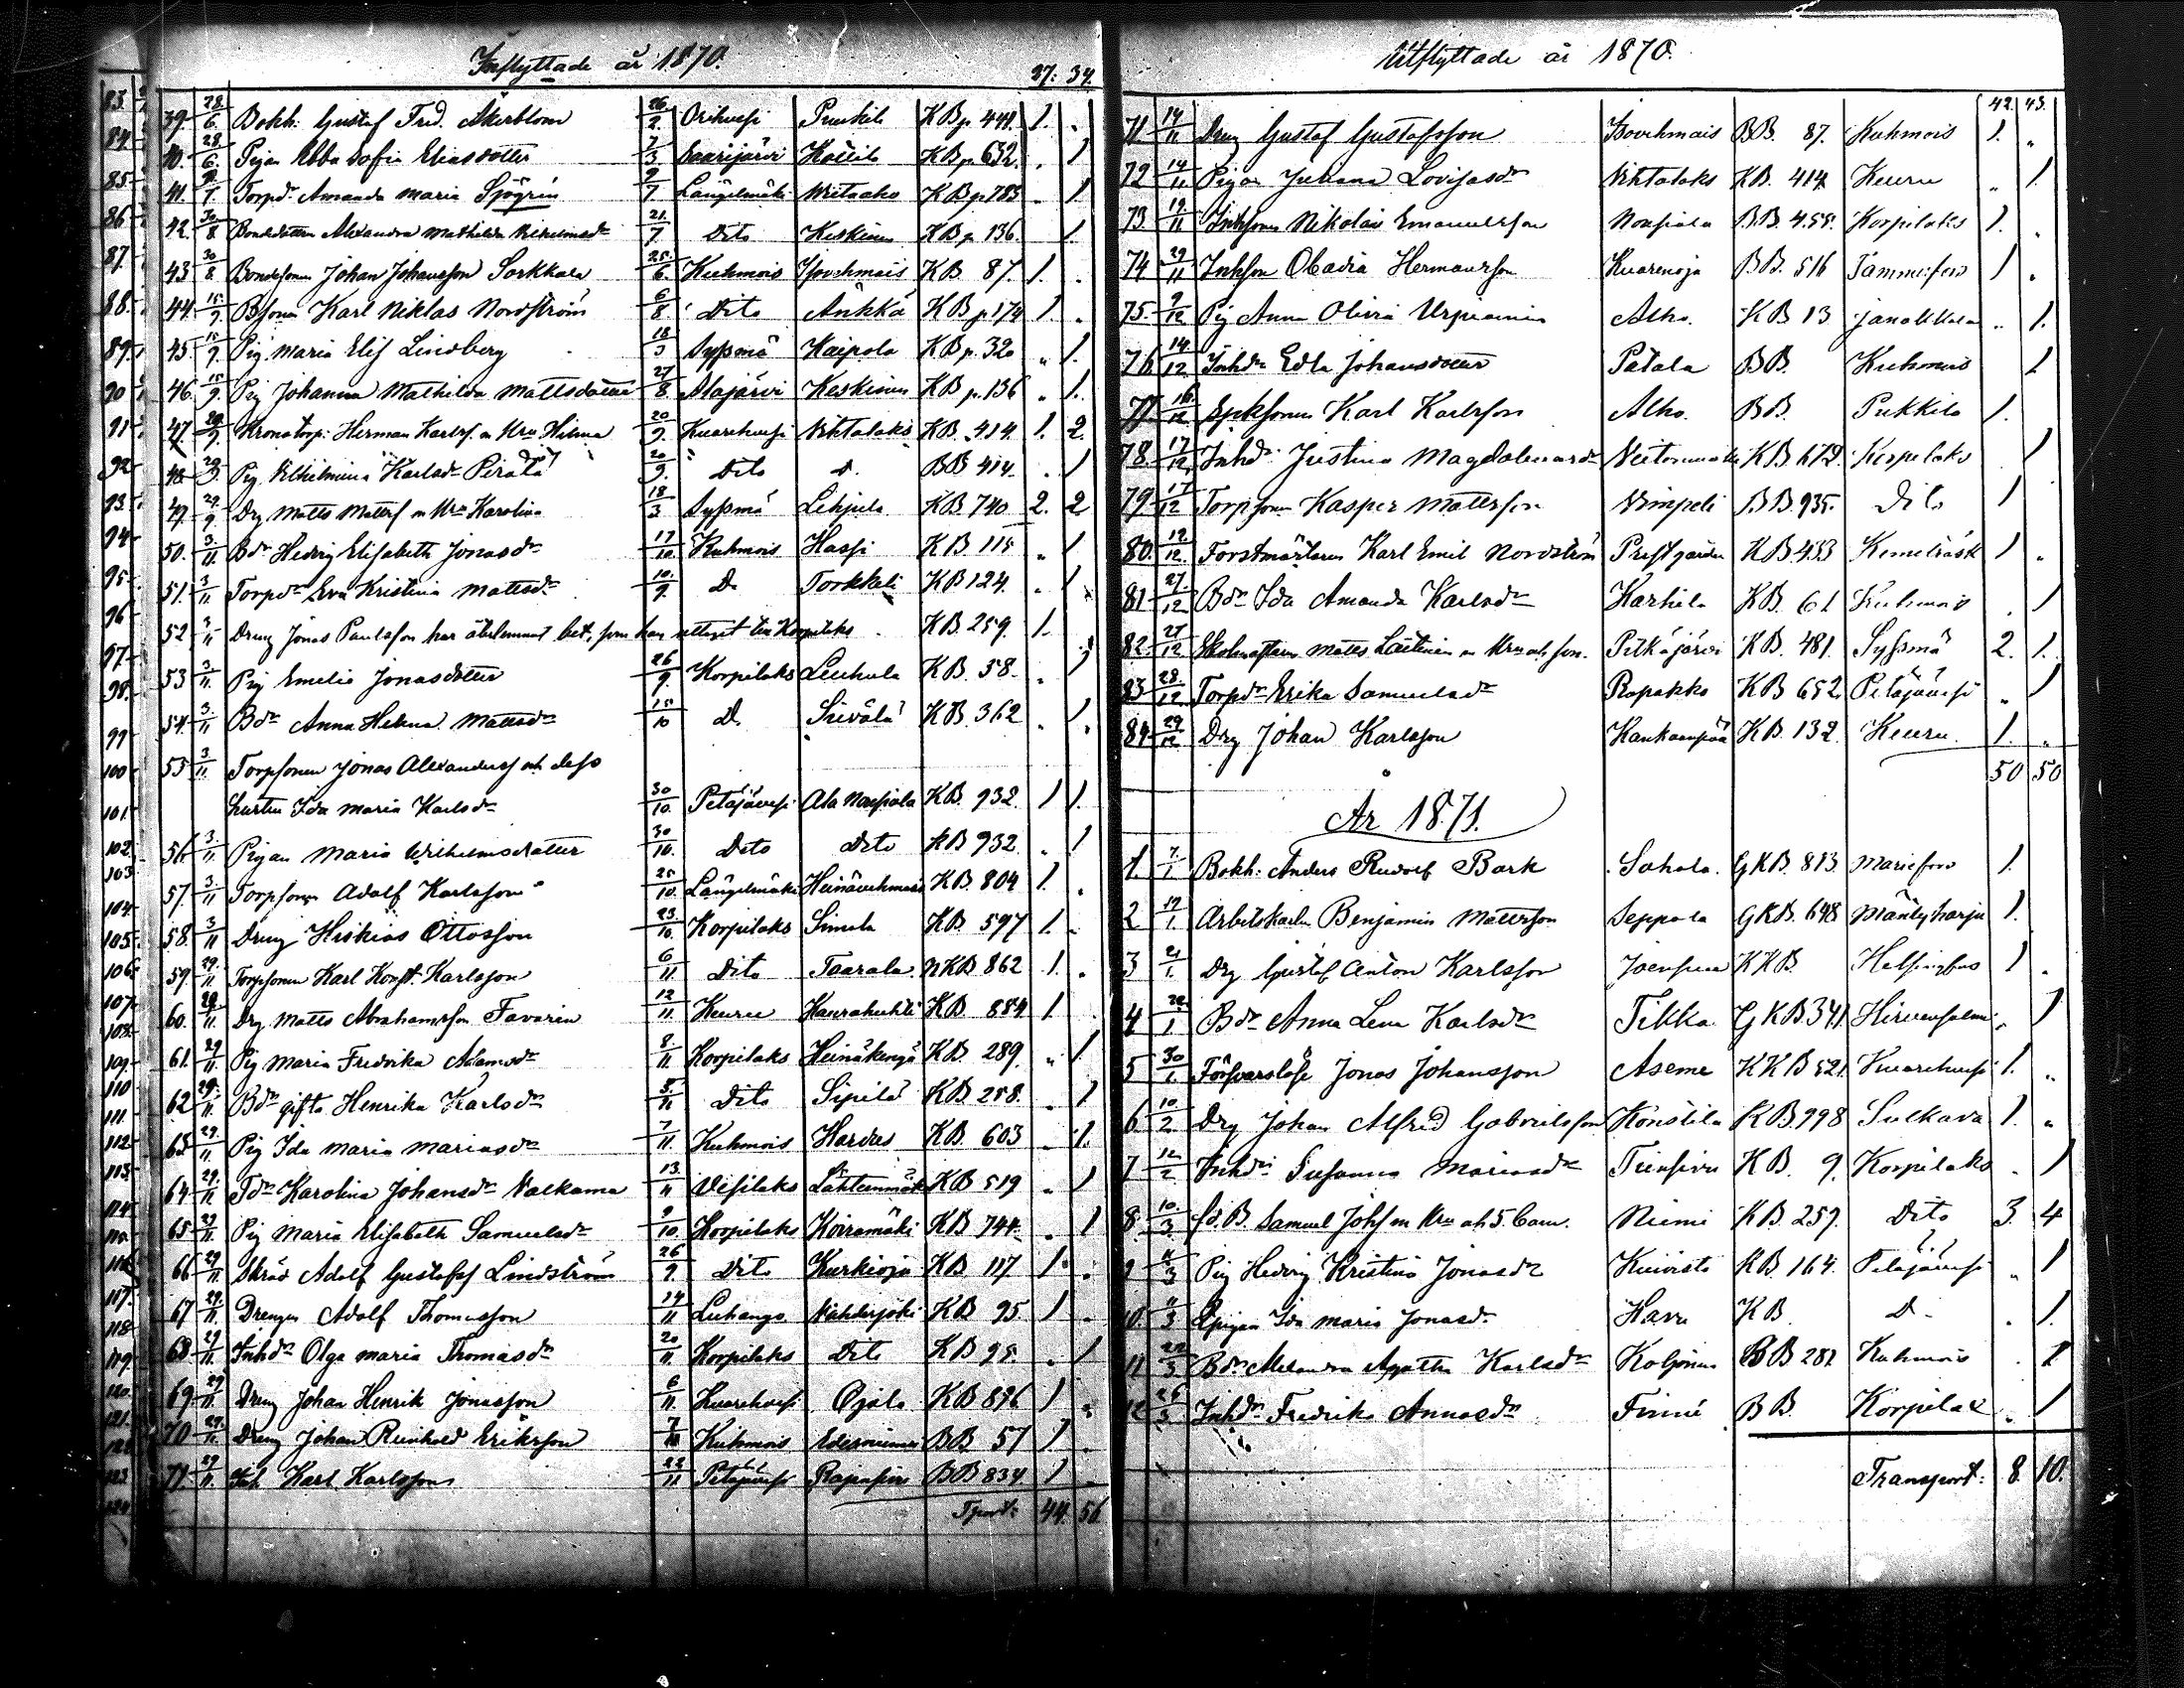 Inflyttade år 1870.
37. 34.
39. 28/6. Bokh. Gustaf Fred. Åkerblom 26/2. Orihvesi Puukila KBp 449. 1. .
40. 28/6. Pigan Ebba Sofia Eliasdotter 7/3. Saarijärvi Kollila KBp. 632. . 1
41. Torpd:r Amanda Maria Sjögrén 9/7 Längelmäki KBp 783 . 1
42. 30/8 Bondedottern Alexandra Mathilda Wilhelmsd:r 21/7 Dito Keskinen KBp. 136. . 1.
43 30/8 Bondesonen Johan Johansson Sarkkala 25/6. Kuhmois KB. 87. 1. .
44. 15/9. Bsonen Karl Niklas Nordström 6/8 Dito Ånkkå KBp 174 1. .
45. 15/9. Pig. Maria Elis Lindberg 18/3 Sysmä Kaipola KBp. 32 „ 1.
46. 15/9. Pig Johanna Mathilda Mattsdotter 27/8. Alajärvi Keskinen KBp. 136 „ 1.
47. 20/9. Kronotorp: Herman Karlss. m Hru Hilma 20/9. Kuorehvesi Vihtalaks KB. 414. 1. 2.
48. 20/9. Pig Vilhelmina Karlsd:r Perälä 20/9. Dito d. BB 414. . 1
49. 29/9 Drg Matts Mattss m Hru Karolina 18/3 Sysmä Lehjula KB 740 2. 2
50. 3/11. Bd:r Hedvig Elisabeth Jonasd:r 17/10. Kuhmois Hassi KB 115 „ 1
51. 3/11. Torpd:r Eva Kristina Mattsd:r 10/9. D. Torkkeli KB 124. . 1
52 3/11 Dreng Jonas Paulsson har återlemnat bet., som han uttagit till Korpilaks KB. 259. 1.
53 3/11. Pig Emelie Jonasdotter 26/9. Korpilaks Leuhula KB. 58. . 1
54. 3/11 Bd:r Anna Helena Mattsd:r 15/10 D. Sievälä KB. 362 . 1.
55 3/11. Torpsonen Jonas Alexanderss och dess
hustru Ida Maria Karlsd:r 30/10. Petäjävesi Ala Naspiala KB. 932. 1 1.
56. 3/11. Pigan Maria Wilhelmsdotter 30/10. Dito Dito KB 932. . 1
57. 3/11 Torpsonen Adolf Karlsson 25/10. Längelmäki KB. 804 1. .
58. 3/11 Dreng Hiskias Ottosson 23/10. Korpilaks Simola KB. 597 1. .
59. 29/11. Torpsonen Karl Konst. Karlsson 6/11. Dito Taarala NKB 862 1. .
60. 29/11. Drg Matts Abrahamsson Favorin 12/11. Keuru Kaurakuhti KB. 884 1
61. 29/11. Pig Maria Fredrika Adamsd:r 8/11. Korpilaks Heinäkengä KB. 289. „ 1.
62 29/11. Bd:r gifta Henrika Karlsd:r 8/11 Dito Sipilä KB 258. . 1
63 29/11. Pig Ida Maria Mariasd:r 7/11. Kuhmois Harjus KB. 603 . 1.
64 29/11 Td:r Karolina Johansd:r Valkama 13/11 Vesilaks KB 519 „ 1
65. 29/11 Pig Maria Elisabeth Samuelsd:r 9/10. Korpilaks Koiramäki KB 744. . 1
66 29/11. Skräd Adolf Gustafss Lindström 26/9. Dito Kurkioja KB 117 1. .
67 29/11. Drengen Adolf Thomasson 14/11 Luhango KB 95 1 .
68 29/11. Inhd:r Olga Maria Thomasd:r 20/11. Korpilaks Dito KB 95. . 1
69 29/11. Dreng Johan Henrik Jonasson 6/11. Kuorehvesi Ojala KB 896 1 .
70 29/11. Dreng Johan Reinhold Eriksson 7/10 Kuhmois Edesniemi BB 57 1 .
71. 29/11. Inh Karl Karlsson 22/11 Petäjävesi Rajasuu BB 834 1 .
Tport: 44. 56
Utflyttade år 1870.
42. 43.
71. 14/11 Dreng Gustaf Gustafsson BB. 87. Kuhmois 1. „
72 14/11 Pigan Juliana Lovisasd:r Vihtalaks KB. 414. Keuru „ 1.
73. 19/11 Inhsonen Nikolai Emanuelsson Naspiala BB. 455. Korpilaks 1. .
74 29/11 Inhson Obadia Hermansson Kuorenoja BB. 516 Tammerfors 1 „
75. 9/12 Pig Anna Olivia Urpiainen Alho. KB 13 Janakkala „ 1.
76 14/12 Inhd:r Edla Johansdotter Patala BB. Kuhmois 1
77 16/12 Karl Karlsson Alho. BB. Pukkila 1.
78. 17/12. Inhd:r Justina Magdalenasd:r KB. 672. Korpilaks 1
79 17/12 Torpsonen Kasper Mattsson Vimpeli BB. 935. Dito 1
80. 19/12. Forstmästaren Karl Emil Nordström Prestgården KB. 433 Kemiträsk 1 „
81 27/12 Bd:r Ida Amanda Karlsd:r Karhila KB. 61 Kuhmois . 1
82. 27/12. Skolmästaren Matts Laitinen m Hru och son. Pitkäjärvi KB. 481. Sysmä 2. 1.
83 28/12 Torpd:r Erika Samuelsd:r Rapakko KB 652. Petäjävesi „ 1
84 29/12 Drg Johan Karlsson Kankaanpää KB. 132. Keuru 1. „
50 50
År 1871.
1. 7/1 Bokh: Anders Rudolf Bark Sahala. GKB. 813. Mariefors 1.
2 19/1. Arbetskarlen Benjamin Mattsson Seppola GKB. 648 Mäntyharju 1.
3 21/1. Drg Gustaf Anton Karlsson Joensuu KKB. Helsingfors 1 .
4 28/1 Bd:r Anna Lena Karlsd:r Tikka GKB. 341. Hirvensalmi „ 1
5 30/1. Försvarslöse Jonas Johansson Aseme KKB 521. Kuorehvesi 1. „
6. 10/2. Drg Johan Alfred Gabrielsson Könsilä KB. 998 Sulkava 1. „
7 12/2 Inhd:r Susanna Mariasd:r Tiensivu KB. 9. Korpilaks . 1
8 10/3 fd. B. Samuel Johss m Hru och 5 barn. Niemi KB. 259. Dito 3. 4
9 11/3 Pig Hedvig Kristina Jonasd:r Kuivisto KB. 164. Petäjävesi „ 1
10. 11/3 Ida Maria Jonasd:r Harru KB D . 1.
11 22/3 Bd:r Alexandra Agatha Karlsd:r Koljonen BB 281 Kuhmois . 1
12 26/3 Inhd:r Fredrika Annasd:r Finni BB. Korpilax „ 1
Transport: 8. 10.